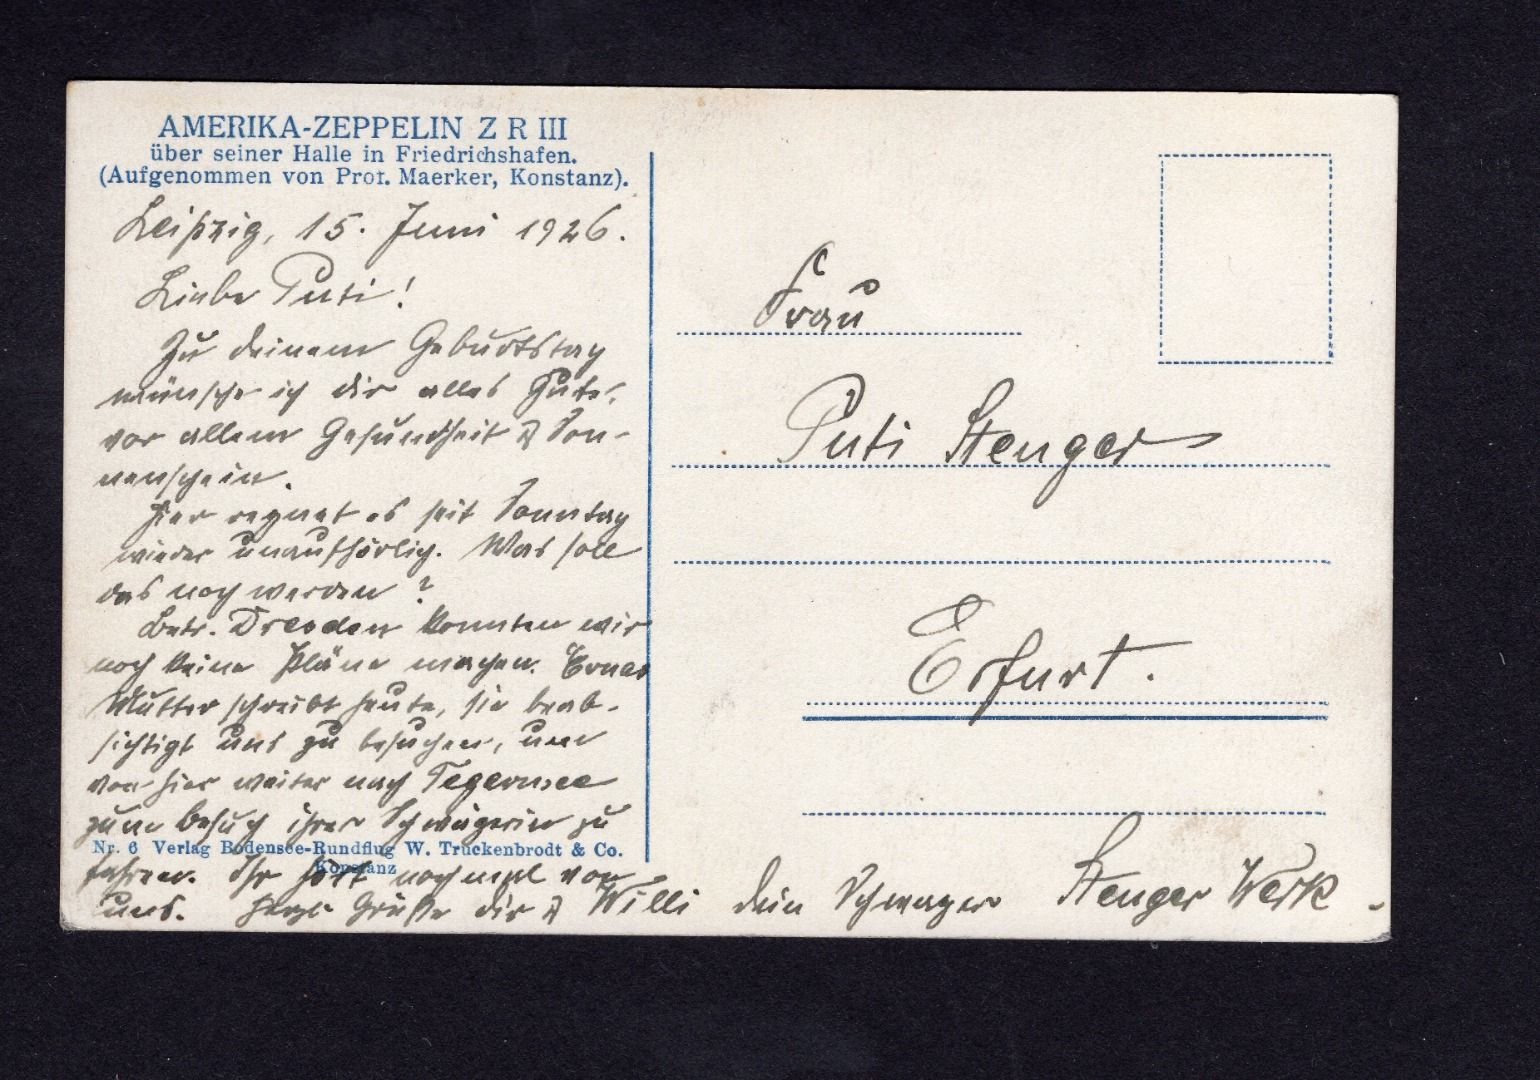 AMERIKA-ZEPPELIN Z R III
über seiner Halle in Friedrichshafen.
(Aufgenommen von Prof. Maerker, Konstanz).
Leipzig, 15. Juni 1926.
Liebe Puti!
Zu deinem Geburtstag
wünsche ich dir alles Gute,
vor allem Gesundheit & Son-
nenschein.
Hier regnet es seit Sonntag
wieder unaufhörlich. Was soll
das noch werden?
Betr. Dresden konnten wir
noch keine Pläne machen. Ernas
Mutter schreibt heute, sie beab-
sichtigt uns zu besuchen, um
von hier weiter nach Tegernsee
zum Besuch ihrer Schwägerin zu
fahren. Ihr hört nochmal von
uns. Herzl. Grüße dir & Willi dein Schwager Stenger
Nr. 6 Verlag Bodensee-Rundflug W. Truckenbrodt & Co.
Konstanz
Frau
Puti Stenger
Erfurt.